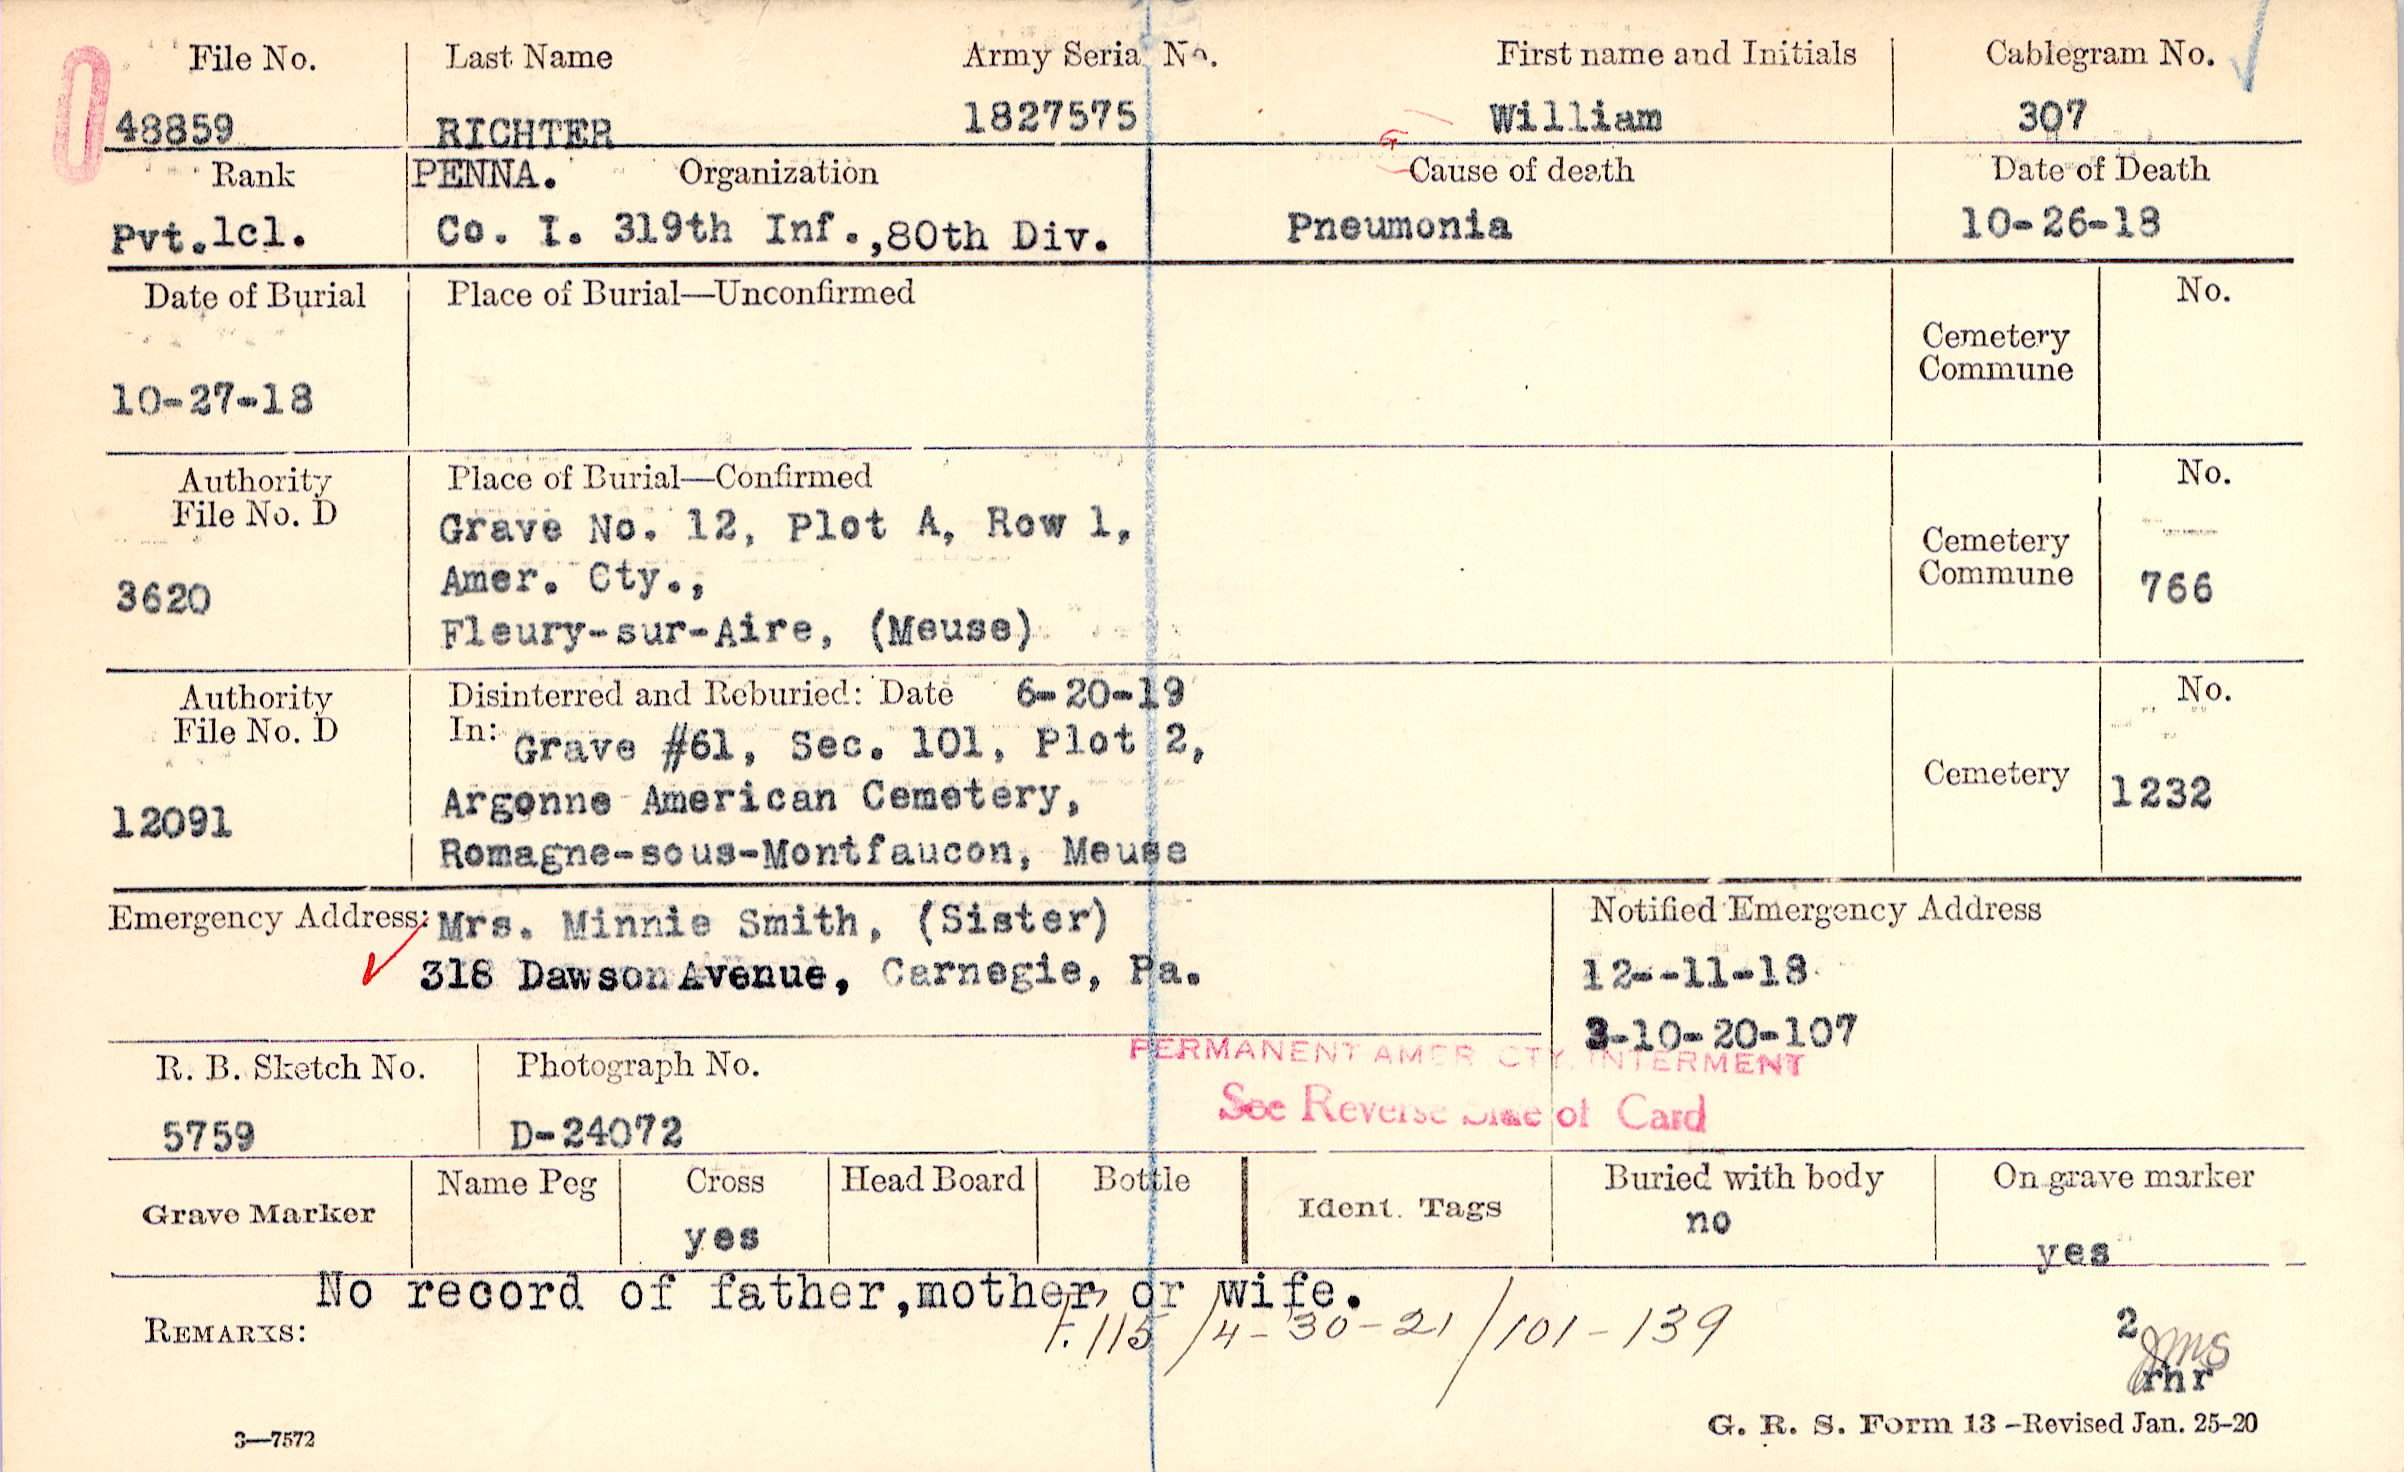 File No. Last Name Army Serial No. First name and Initials Cablegram No.
48859 RICHTER 1827575 William 307
Rank PENNA. Organization Cause of death Date of Death
Pvt.1cl. Co. I. 319th Inf.,80th Div. Pneumonia 10-26-18
Date of Burial Place of Burial—Unconfirmed No.
Cemetery
Commune
10-27-18
Authority Place of Burial—Confirmed No.
File No. D Grave No. 12, Plot A, Row 1,
Cemetery
Amer. Cty., Commune 766
3620
Fleury-sur-Aire, (Meuse)
Authority Disinterred and Reburied: Date 6-20-19 No.
File No. D In: Grave #61, Sec. 101, Plot 2,
Cemetery 1232
12091 Argonne American Cemetery,
Romagne-sous-Montfaucon, Meuse
Emergency Address: Mrs. Minnie Smith, (Sister) Notified Emergency Address
318 Dawson Avenue, Carnegie, Pa. 12--11-18
3-10-20-107
PERMANENT AMER CTY. INTERMENT
R. B. Sketch No. Photograph No.
See Reverse Side of Card
5759 D-24072
Grave Marker Name Peg Cross Head Board Bottle Ident. Tags Buried with body On grave marker
yes no yes
No record of father,mother or wife.
REMARKS: F.115/4-30-21/101-139 2
rhr
3—7572 G. R. S. Form 13 —Revised Jan. 25-20